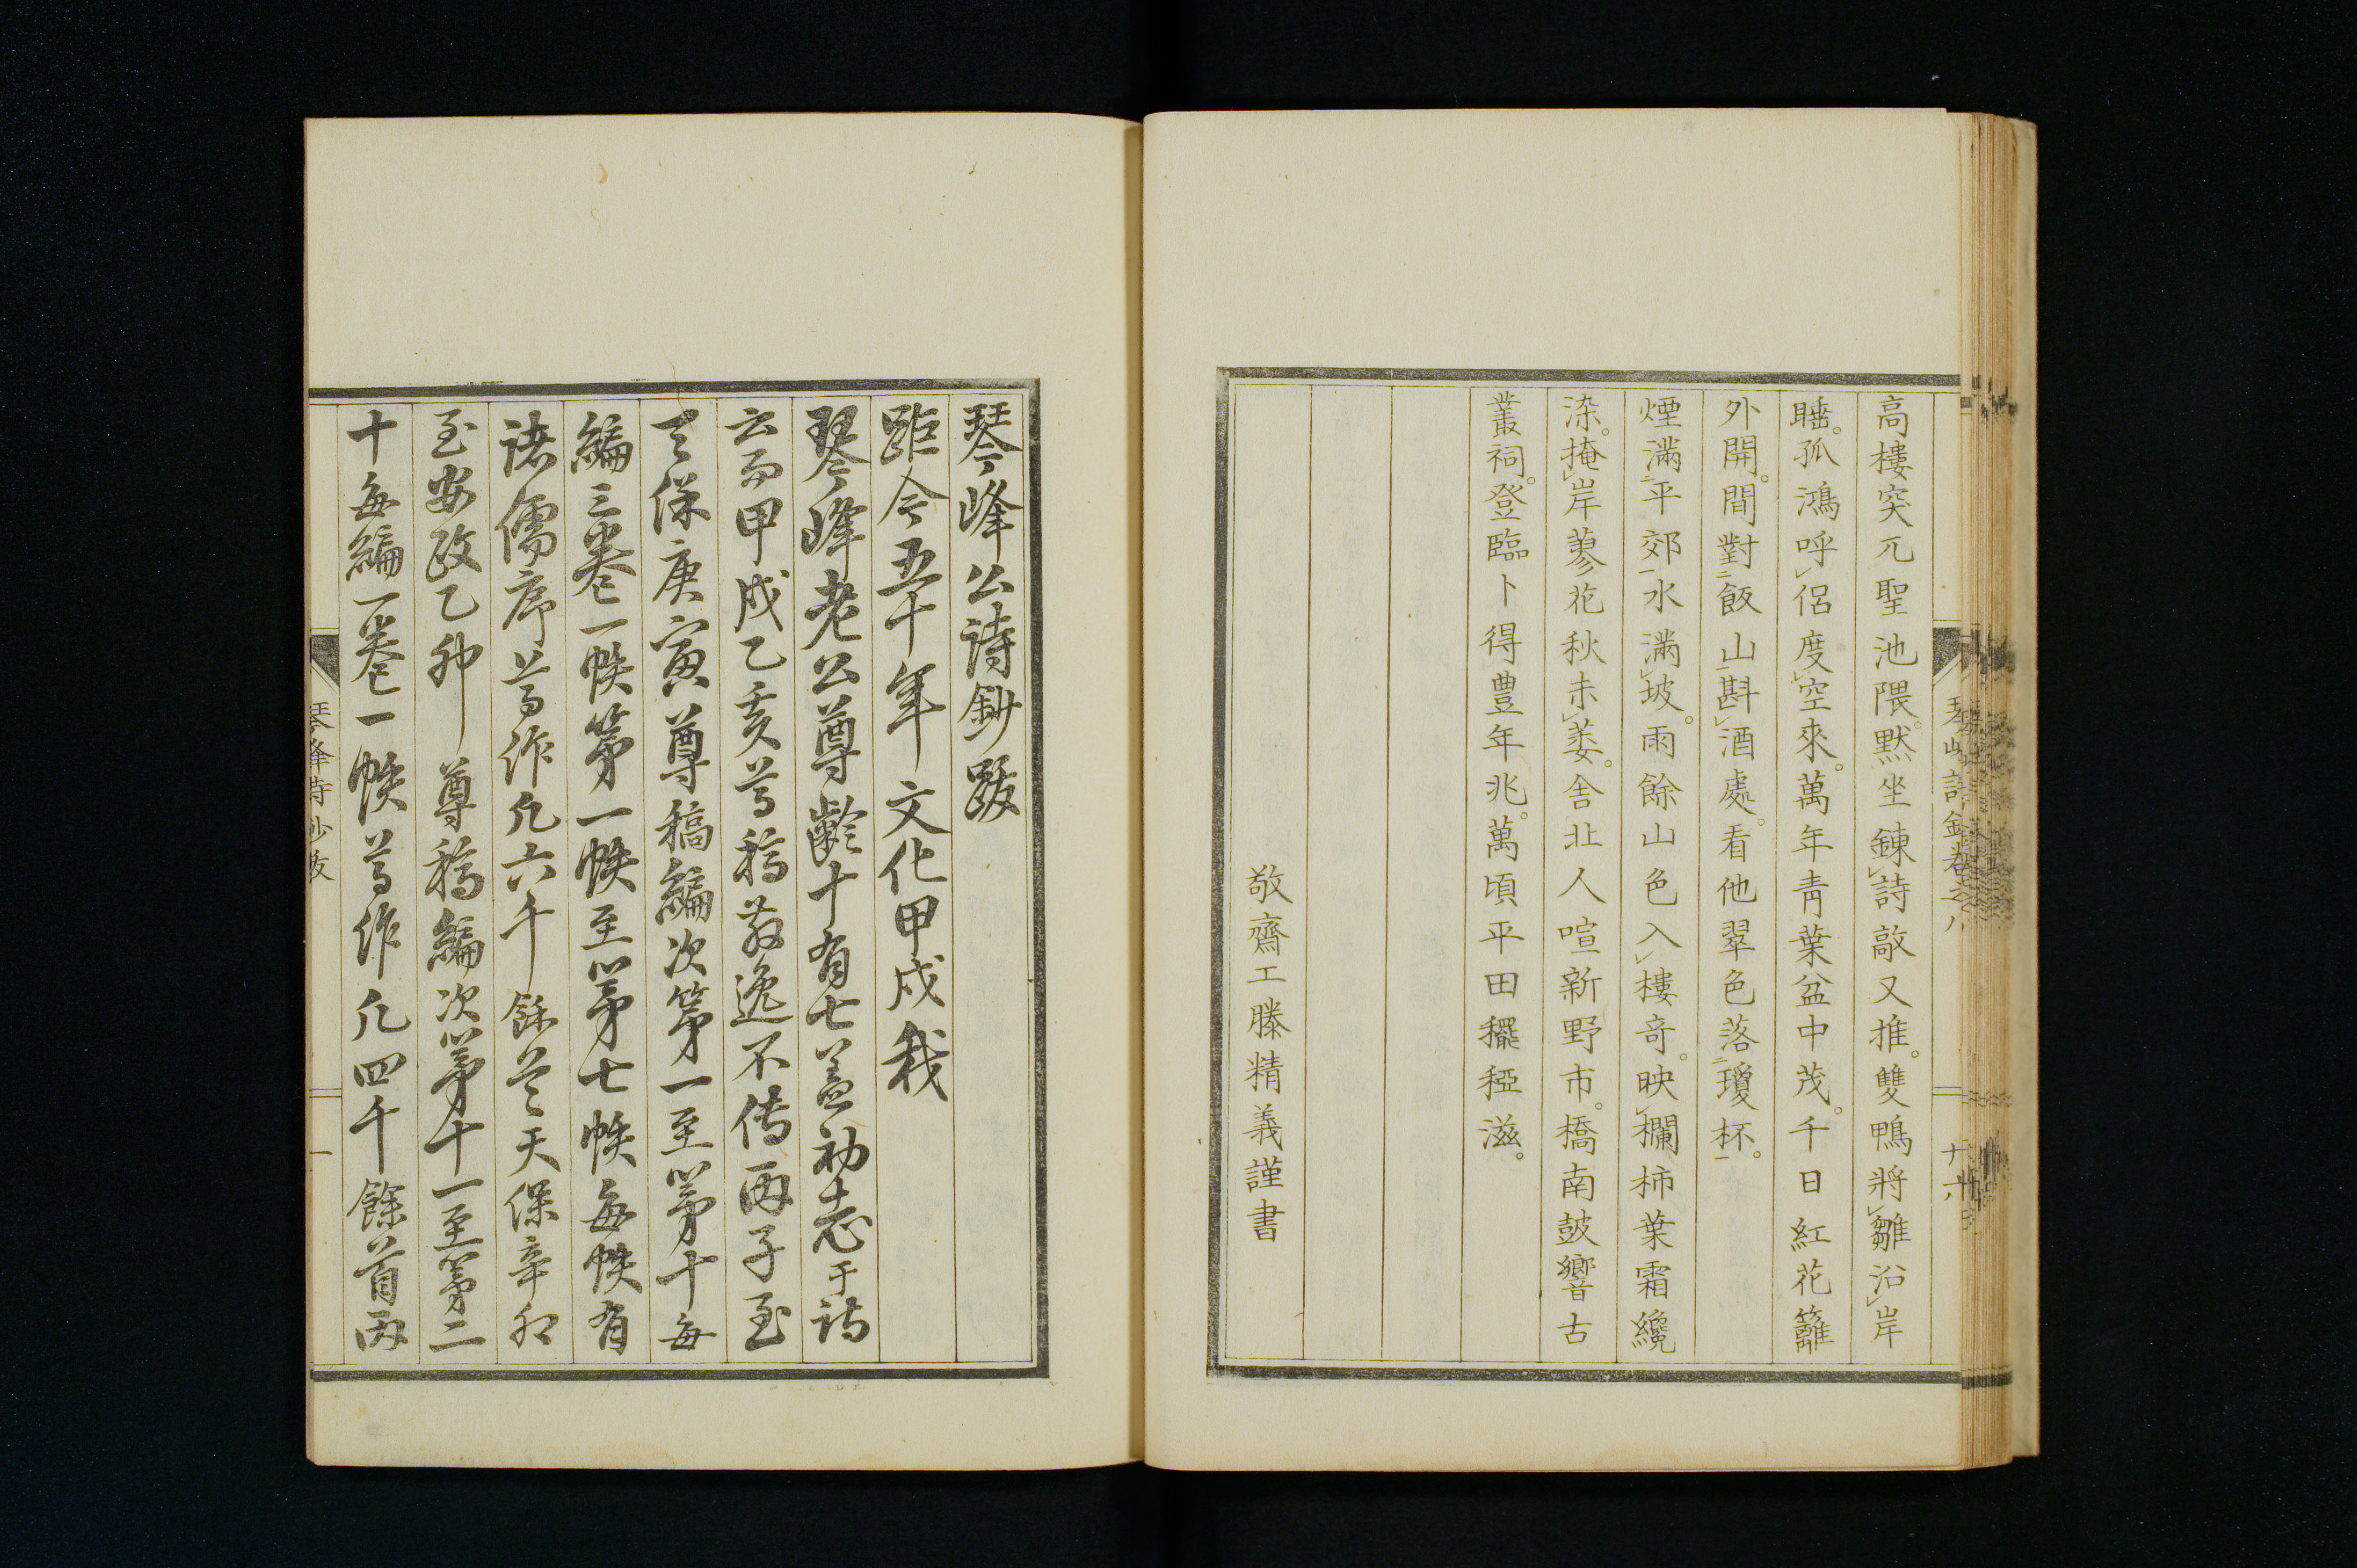 高樓突兀聖池隈。默坐鍊詩敲又推。雙鴨將雛沿岸
睡。孤鴻呼侶度空來。萬年青葉盆中茂。千日紅花籬
外開。間對飯山斟酒處。看他翠色落瓊杯。
煙滿平郊水滿坡。雨餘山色入樓奇。映欄柿葉霜纔
染。掩岸蓼花秋未萎。舍北人喧新野市。橋南鼓響古
叢祠。登臨卜得豊年兆。萬頃平田䆉稏滋。
敬齋工滕精義謹書
琴峰公詩鈔跋
距今五十年 文化甲戌我
琴峰老公尊齡十有七盖初志于詩
云而甲戌乙亥尊稿散逸不傳丙子至
天保庚寅尊稿編次第一至第十每
編三卷一帙第一帙至第七帙每帙有
諸儒序尊作凡六千餘首天保辛卯
至安政乙卯 尊稿編次第十一至第二
十每編一卷一帙尊作凡四千餘首兩
琴峰詩鈔跋
一